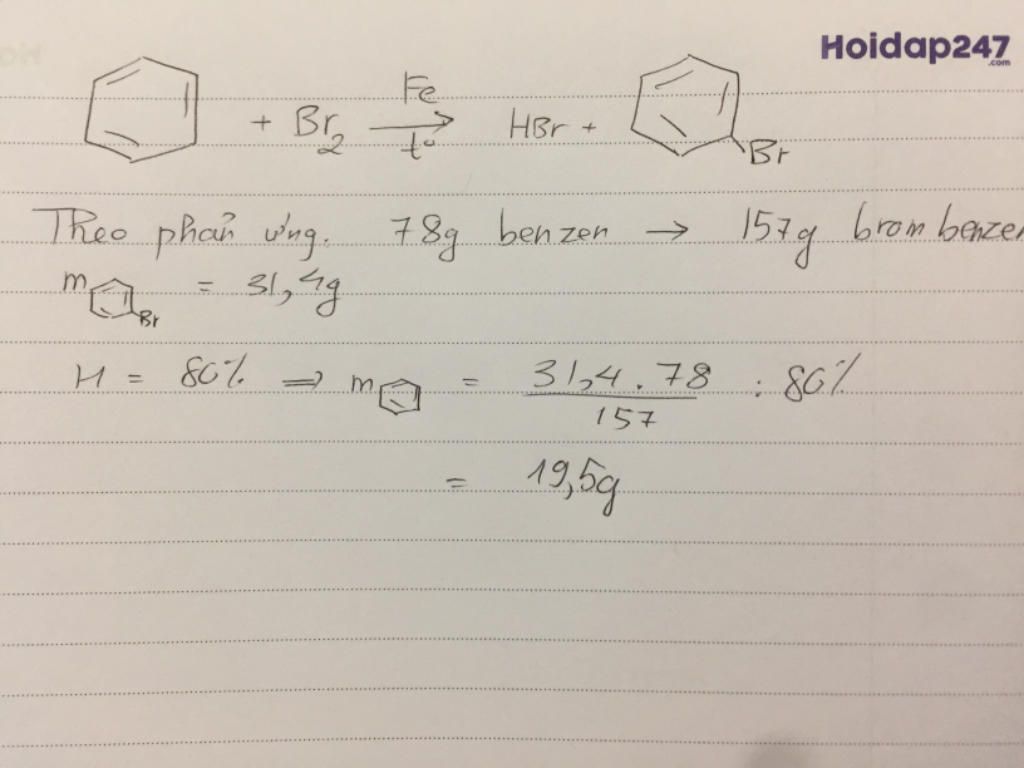 Hoidap247
.com
+ Br2 Fe t° HBr + Br
Theo phản ứng. 78g benzen → 157g brom benzen
m Br = 31,4g
H = 80% ⇒ m = 31,4.78 / 157 : 80%
= 19,5g